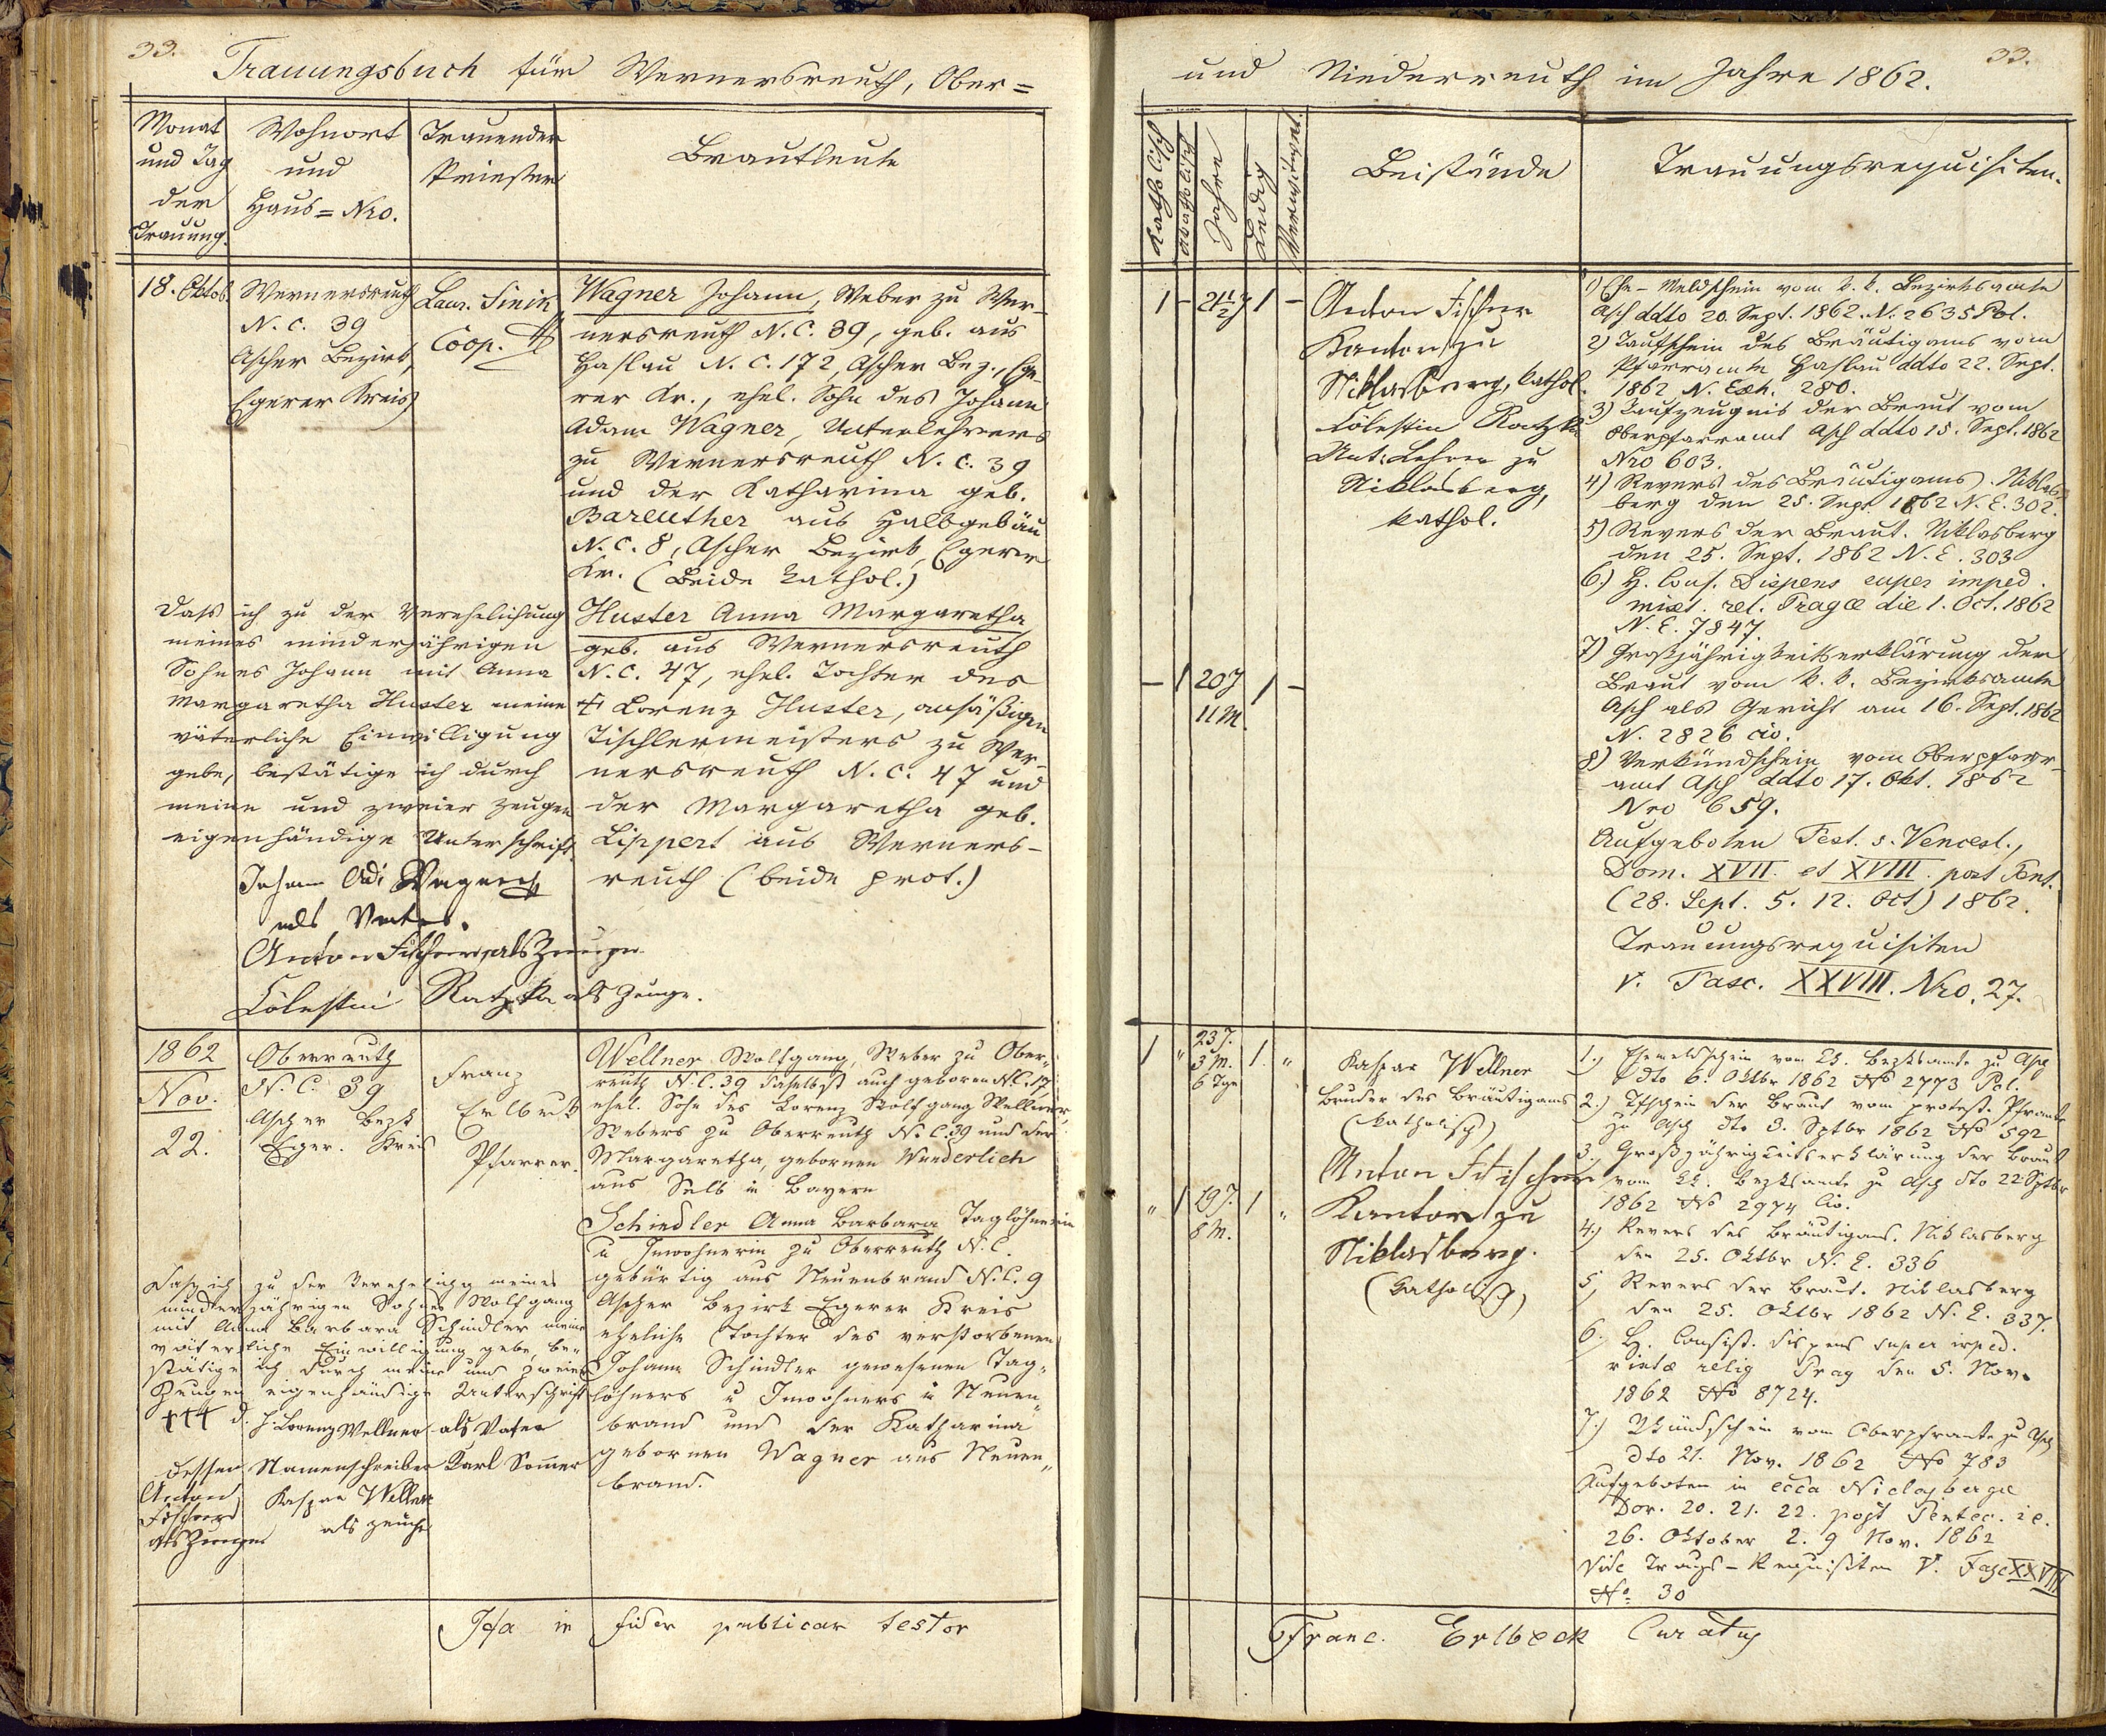 33.
Trauungsbuch für Wernersreuth, Ober=
Monat
und Tag
der
Trauung.
Wohnort
und
Haus=Nro.
Trauender
Priester
Brautleute
18. Oktob.
Wernersreuth
N. C. 39
Ascher Bezirk,
Egerer Kreis
Laur. Sinik
Coop.
Wagner Johann, Weber zu Wer-
nersreuth N. C. 39, geb. aus
Haslau N. C. 172, Ascher Bez., Ege-
rer Kr., ehel. Sohn des Johann
Adam Wagner, Unterlehrers
zu Wernersreuth N. C. 39
und der Katharina geb.
Bareuther aus Halbgebäu
N. C. 8, Ascher Bezirk, Egerer
Kr. (Beide kathol.)
Huster Anna Margaretha
geb. aus Wernersreuth
N. C. 47, ehel. Tochter des
† Lorenz Huster, ansäßigen
Tischlermeisters zu Wer-
nersreuth N. C. 47 und
der Margaretha geb.
Lippert aus Werners-
reuth (beide prot.)
Dass ich zu der Verehelichung
meines minderjährigen
Sohnes Johann mit Anna
Margaretha Huster meine
väterliche Einwilligung
gebe, bestätige ich durch
meine und zweier Zeugen
eigenhändige Unterschrift.
Johann Adi Wagner
als Vater.
Anton Fischer als Zeuge
Cölestin Ratzka als Zeuge.
1862
Nov.
22.
Oberreuth
N. C. 39
Ascher Bezk
Eger. Kreis
Franz
Erlbeck
Pfarrer.
Wellner Wolfgang, Weber zu Ober-
reuth N. C. 39 daselbst auch geboren N. C. 17,
ehel. Sohn des Lorenz Wolfgang Wellner,
Webers zu Oberreuth N. C. 39 und der
Margaretha, gebornen Wunderlich
aus Selb in Bayern
Schindler Anna Barbara Taglöhnerin
u Inwohnerin zu Oberreuth N. C.
gebürtig aus Neuenbrand N. C. 9
Ascher Bezirk Egerer Kreis
eheliche Tochter des verstorbenen
Johann Schindler gewesenen Tag-
löhners u Inwohners in Neuen-
brand und der Katharina
gebornen Wagner aus Neuen-
brand.
Daß ich zu der Verehelichg meines
minderjährigen Sohnes Wolfgang
mit Anna Barbara Schindler meine
väterliche Einwilligung gebe, be-
stätige ich durch meine und zweier
Zeugen eigenhändige Unterschrift
+++ d. J. Lorenz Wellner als Vater
dessen Namenschreiber Karl Somer
Anton
Fischer
als Zeuge
Kaspar Wellner
als Zeuge
Ita in fidem publicam testor
33.
und Niederreuth im Jahre 1862.
Katholisch
Akatholisch
Jahre
Ledig
Verwitwet.
Beistände
Trauungsrequisiten.
1 - 21 1/2 J 1 -
- 1 20 J 1 -
11 M.
Anton Fischer
Kantor zu
Niklasberg, kathol.
Cölestin Ratzka
Unt. Lehrer zu
Niklasberg,
kathol.
1) Ehe-Meldschein vom k. k. Bezirksamte
Asch ddto 20. Sept. 1862. N. 2635 Pol.
2) Taufschein des Bräutigams vom
Pfarramte Haslau ddto 22. Sept.
1862 N. Exh. 280.
3) Taufzeugnis der Braut vom
Oberpfarramt Asch ddto 15. Sept. 1862
Nro 603.
4) Revers des Bräutigams. Niklas-
berg den 25. Sept 1862 N. E. 302.
5) Revers der Braut. Niklasberg
den 25. Sept. 1862 N. E. 303
6) H. Cons. Dispens super imped.
mixt. rel. Pragæ die 1. Oct. 1862
N. E. 7847.
7) Großjährigkeitserklärung der
Braut vom k. k. Bezirksamte
Asch als Gericht am 16. Sept. 1862
N. 2826 civ.
8) Verkündschein vom Oberpfarr-
amt Asch ddto 17. Okt. 1862
Nro 659.
Aufgeboten Fest. s. Vencesl.,
Dom. XVII. et XVIII. post Pent.
(28. Sept. 5. 12. Oct) 1862.
Trauungsrequisiten
v. Fasc. XXVIII. Nro. 27.
1 " 23 J. 1. "
3 M.
6 Tge
" 1 19 J. 1 "
8 M.
Kaspar Wellner
Bruder des Bräutigams
(katholisch)
Anton Fitscher
Kantor zu
Niklasberg.
(katholisch)
1.) Ehemeldschein vom kk. Bezksamte zu Asch
dto 6. Oktbr 1862 No 2773 Pol.
2.) Tfschein der Braut vom protest. Pframte
zu Asch dto 3. Sptbr 1862 No 592
3. Großjährigkeitserklärung der Braut
vom kk. Bezksamte zu Asch dto 22 Sptbr
1862 No 2974 Civ.
4.) Revers des Bräutigams. Niklasberg
den 25. Oktbr N. E. 336
5, Revers der Braut. Niklasberg
den 25. Oktbr 1862 N. E. 337.
6. H. Consist. dispens super imped.
mixtæ relig Prag den 5. Nov.
1862 No 8724.
7.) Vkündschein vom Oberpframte zu Asch
dto 21. Nov. 1862 No 783
Aufgeboten in ecca Niclasbergæ
Dom. 20. 21. 22. post Pentec. ie.
26. Oktober 2. 9 Nov. 1862
Vide Traugs-Requisiten V. Fasc XXVIII
No 30
Franc. Erlbeck Curatus